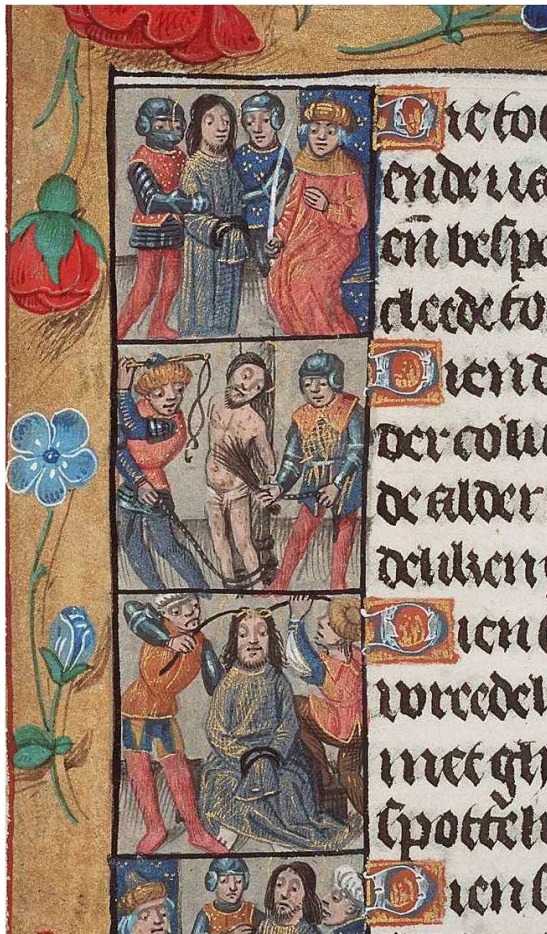 Die to
ende
en̄ besp
cleede to
Dien
der colu
de alder
deliken
Dien
wreedel
met gh
spotteli
Dien